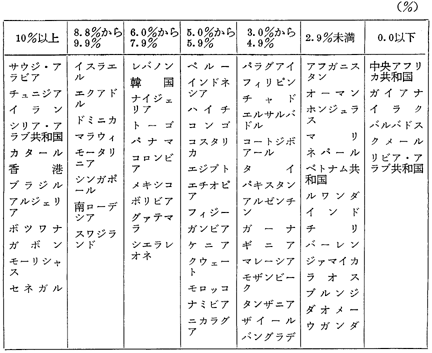 (%)
10%以上
8.8%から
9.9%
6.0%から
7.9%
5.0%から
5.9%
3.0%から
4.9%
2.9%未満
0.0以下
サウジ・ア
ラビア
チュニジア
イラン
シリア・ア
ラブ共和国
カタール
香港
ブラジル
アルジェリ
ア
ボツワナ
ガボン
モーリシャ
ス
セネガル
イスラエ
ル
エクアド
ル
ドミニカ
マラウィ
モータリ
ニア
シンガポ
ール
南ローデ
シア
スワジラ
ンド
レバノン
韓国
ナイジェ
リア
トーゴ
パナマ
コロンビ
ア
メキシコ
ボリビア
グァテマ
ラ
シエラレ
オネ
ペルー
インドネ
シア
ハイチ
コンゴ
コスタリ
カ
エジプト
エチオピ
ア
フィジー
ガンビア
ケニア
クウェー
ト
モロッコ
ナミビア
ニカラグ
ア
パラグアイ
フィリピン
チャド
エルサルバ
ドル
コートジボ
アール
タイ
パキスタン
アルゼンチ
ン
ガーナ
ギニア
マレーシア
モザンビー
ク
タンザニア
ザイール
バングラデ
アフガニス
タン
オーマン
ホンジュラ
ス
マリ
ネパール
ベトナム共
和国
ルワンダ
インド
チリ
バーレン
ジァマイカ
ラオス
ブルンジ
ダオメー
ウガンダ
中央アフリ
カ共和国
ガイアナ
イラク
バルバドス
クメール
リビア・ア
ラブ共和国